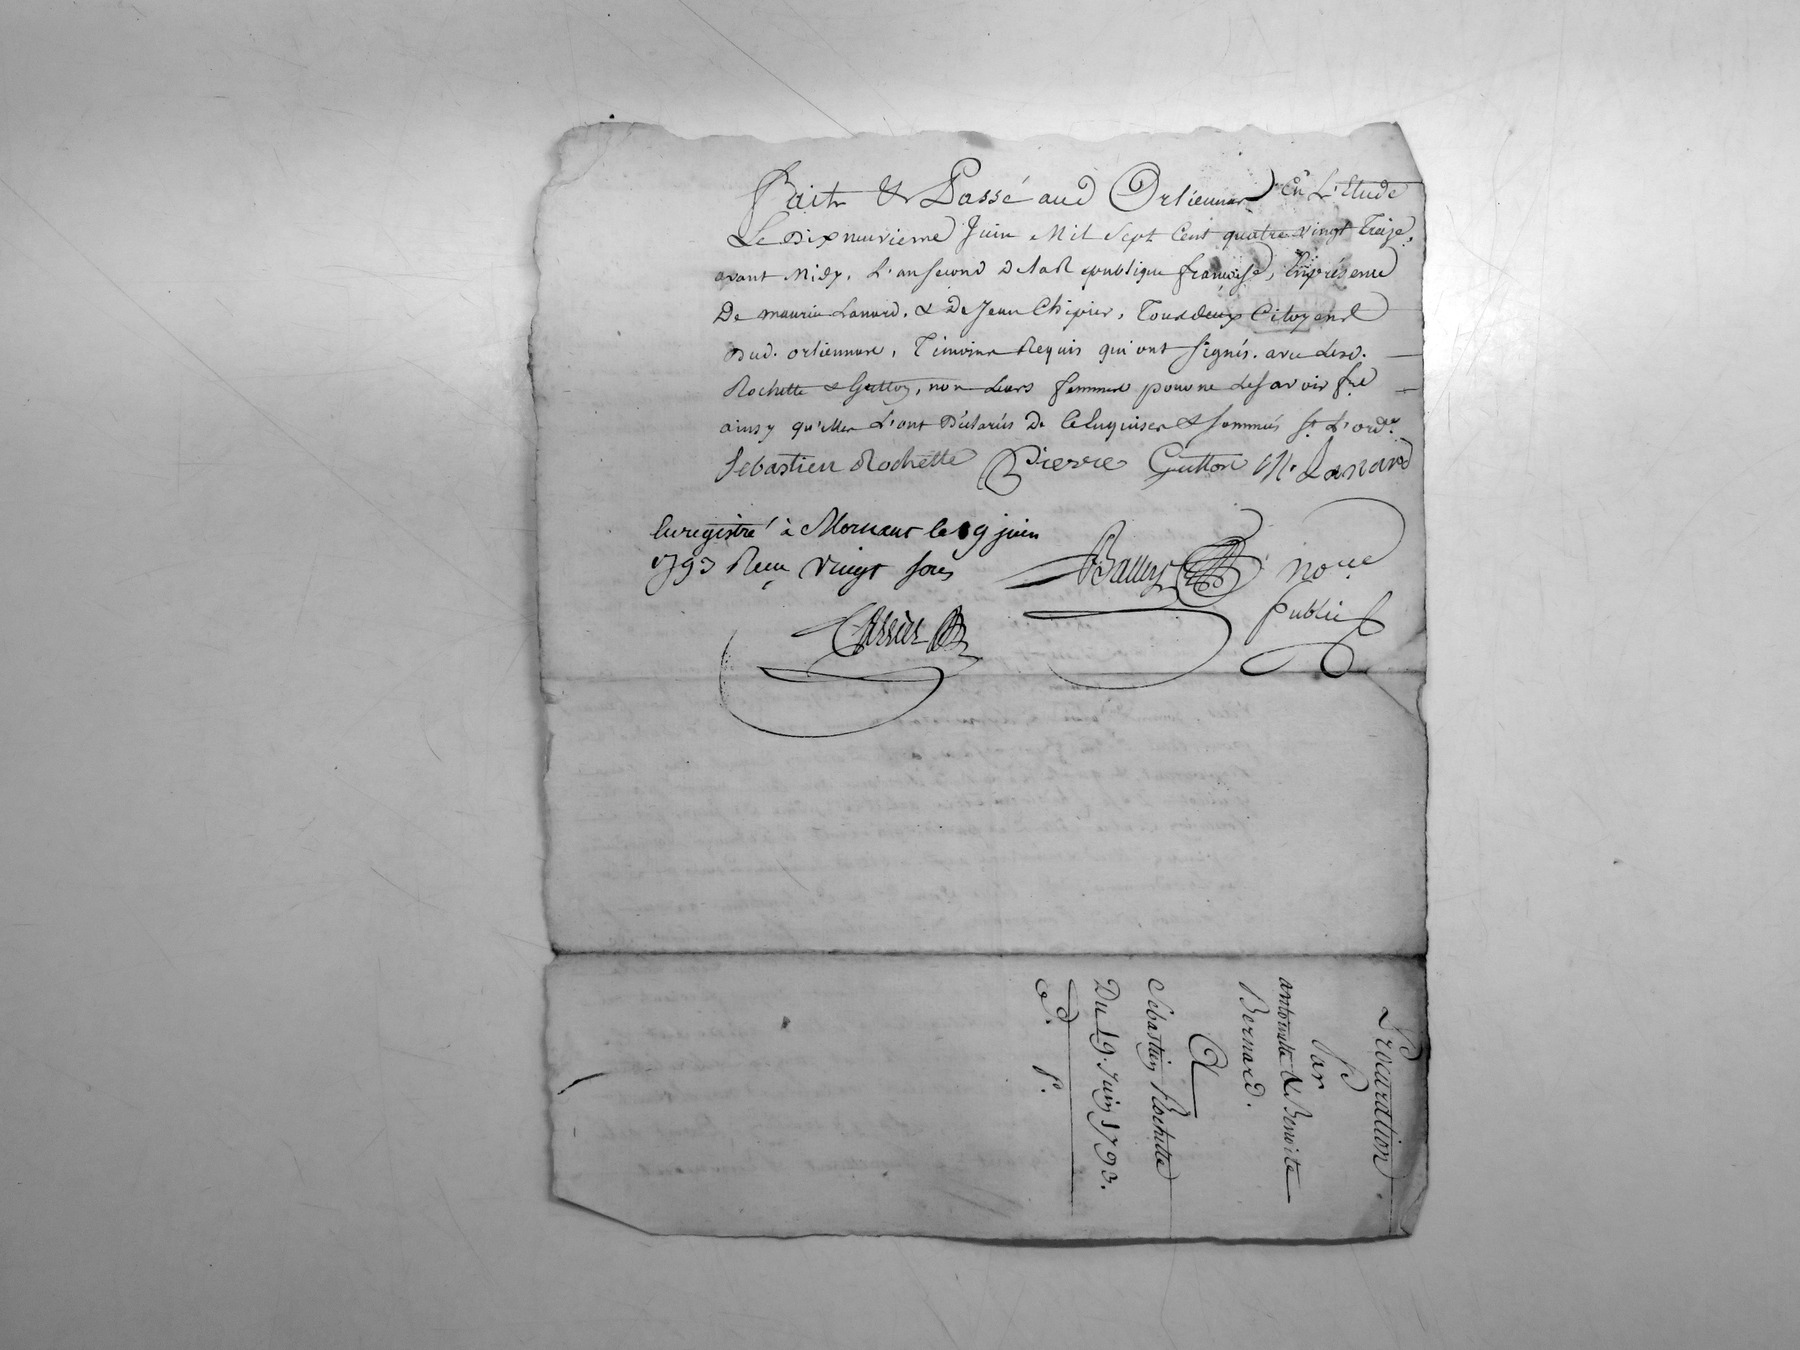 Fait & Passé aud Orliennas En L'Etude
Le Dixneuvieme Juin Mil Sept Cent quatre vingt Treize,
avant Midy, L'an second De la Republique françoise, En présence
De maurice Lanard, & De Jean Chipier, Tous deux Citoyens
Dud. orliennas, Témoins Requis qui ont signés avec lesd.
Rochette & Gutton, non Leurs femmes pour ne Le savoir fre
ainsy qu'elles L'ont Déclarés De Ce Enquises & sommés St L'ordce
Sebastien Rochette Pierre Gutton M. Lanard
Enregistré à Mornant le 19 juin
1793 Reçu vingt sous
nore
public
Procuration
Par
antoinette & Benoite
Bernard.
A
Sebastien Rochette
Du 19. Juin 1793.